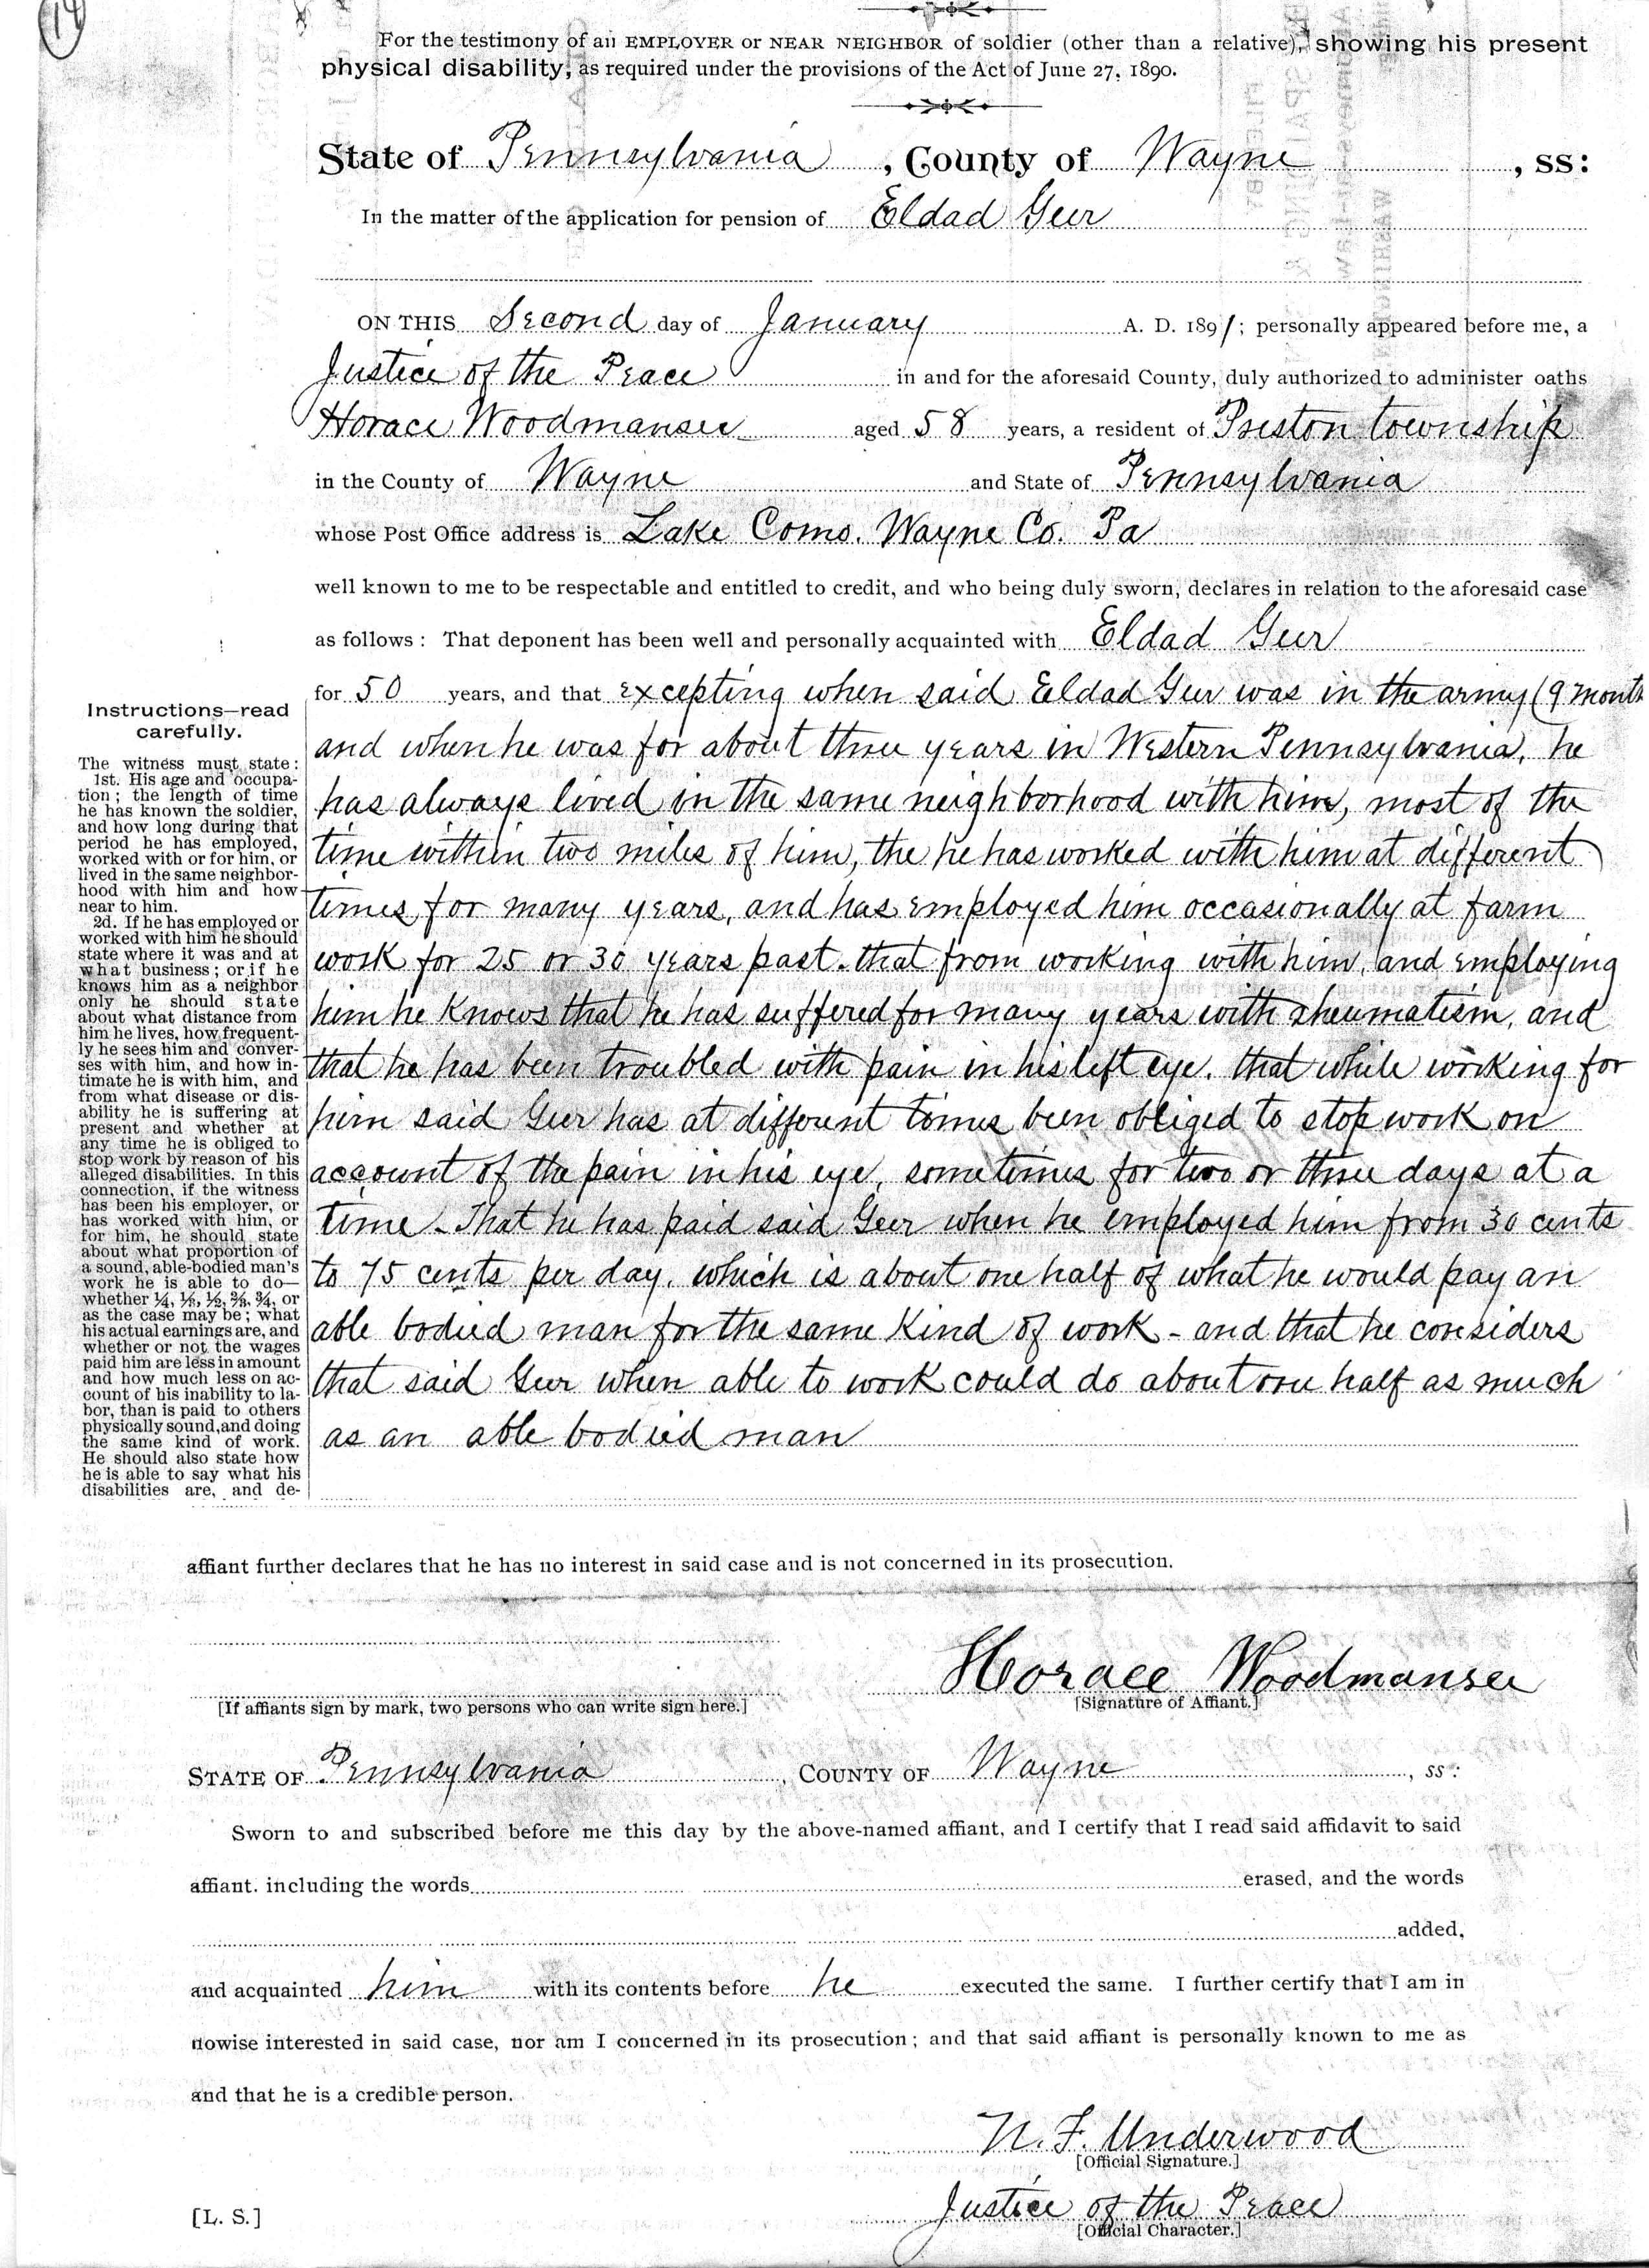 14
For the testimony of an EMPLOYER or NEAR NEIGHBOR of soldier (other than a relative), showing his present
physical disability, as required under the provisions of the Act of June 27, 1890.
State of Pennsylvania, County of Wayne, ss:
In the matter of the application for pension of Eldad Geer
ON THIS Second day of January A. D. 1891; personally appeared before me, a
Justice of the Peace in and for the aforesaid County, duly authorized to administer oaths
Horace Woodmansee aged 58 years, a resident of Preston township
in the County of Wayne and State of Pennsylvania
whose Post Office address is Lake Como. Wayne Co. Pa
well known to me to be respectable and entitled to credit, and who being duly sworn, declares in relation to the aforesaid case
as follows: That deponent has been well and personally acquainted with Eldad Geer
for 50 years, and that excepting when said Eldad Geer was in the army (9 month
and when he was for about three years in Western Pennsylvania, he
has always lived in the same neighborhood with him, most of the
time within two miles of him, the he has worked with him at different
times for many years, and has employed him occasionally at farm
work for 25 or 30 years past. that from working with him, and employing
him he knows that he has suffered for many years with rheumatism, and
that he has been troubled with pain in his left eye. that while working for
him said Geer has at different times been obliged to stop work on
account of the pain in his eye, sometimes for two or three days at a
time - That he has paid said Geer when he employed him from 30 cents
to 75 cents per day, which is about one half of what he would pay an
able bodied man for the same kind of work - and that he considers
that said Geer when able to work could do about one half as much
as an able bodied man
Instructions—read
carefully.
The witness must state:
1st. His age and occupa-
tion; the length of time
he has known the soldier,
and how long during that
period he has employed,
worked with or for him, or
lived in the same neighbor-
hood with him and how
near to him.
2d. If he has employed or
worked with him he should
state where it was and at
what business; or if he
knows him as a neighbor
only he should state
about what distance from
him he lives, how frequent-
ly he sees him and conver-
ses with him, and how in-
timate he is with him, and
from what disease or dis-
ability he is suffering at
present and whether at
any time he is obliged to
stop work by reason of his
alleged disabilities. In this
connection, if the witness
has been his employer, or
has worked with him, or
for him, he should state
about what proportion of
a sound, able-bodied man's
work he is able to do—
whether ¼, ⅓, ½, ⅔, ¾, or
as the case may be; what
his actual earnings are, and
whether or not the wages
paid him are less in amount
and how much less on ac-
count of his inability to la-
bor, than is paid to others
physically sound, and doing
the same kind of work.
He should also state how
he is able to say what his
disabilities are, and de-
affiant further declares that he has no interest in said case and is not concerned in its prosecution.
Horace Woodmansee
[If affiants sign by mark, two persons who can write sign here.] [Signature of Affiant.]
STATE OF Pennsylvania, COUNTY OF Wayne, ss:
Sworn to and subscribed before me this day by the above-named affiant, and I certify that I read said affidavit to said
affiant. including the words erased, and the words
added,
and acquainted him with its contents before he executed the same. I further certify that I am in
nowise interested in said case, nor am I concerned in its prosecution; and that said affiant is personally known to me as
and that he is a credible person.
N. F. Underwood
[Official Signature.]
Justice of the Peace
[L. S.] [Official Character.]